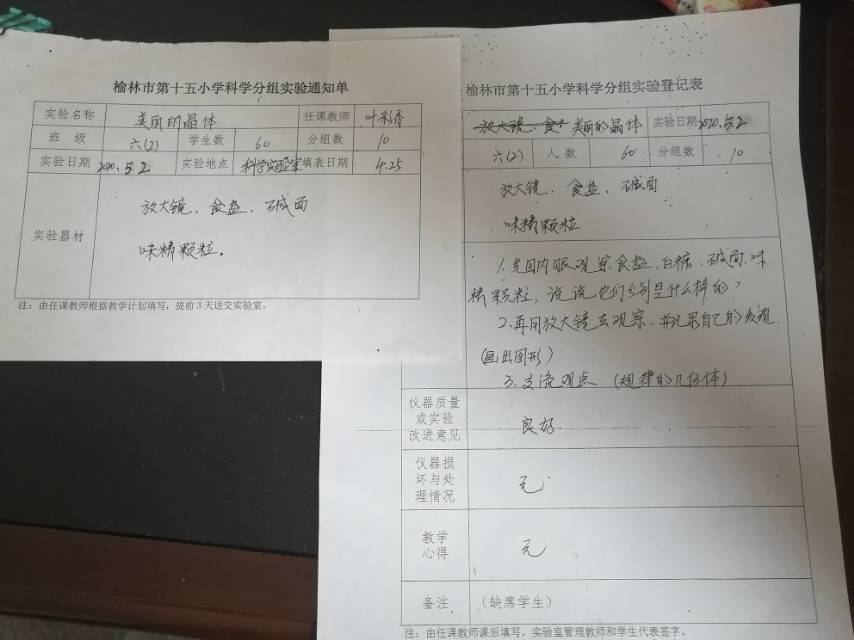 榆林市第十五小学科学分组实验通知单
实验名称 美丽的晶体 任课教师
班 级 六(2) 学生数 60 分组数 10
实验日期 2020.5.2 实验地点 科学实验室 填表日期 4.25
实验器材 放大镜、食盐、碱面
味精颗粒。
注：由任课教师根据教学计划填写，提前3天送交实验室。
榆林市第十五小学科学分组实验登记表
放大镜、食 美丽的晶体 实验日期 2020.5.2
六(2) 人 数 60 分组数 10
放大镜、食盐、碱面
味精颗粒
1.先用肉眼观察食盐、白糖、碱面、味
精颗粒，说说他们分别是什么样的？
2.再用放大镜去观察，并记录自己的发现
(画出图形)
3.交流观点 (规律的几何体)
仪器质量
或实验
改进意见
良好.
仪器损
坏与处
理情况
无
教学
心得
无
备注 (缺席学生)
注：由任课教师课后填写，实验室管理教师和学生代表签字。